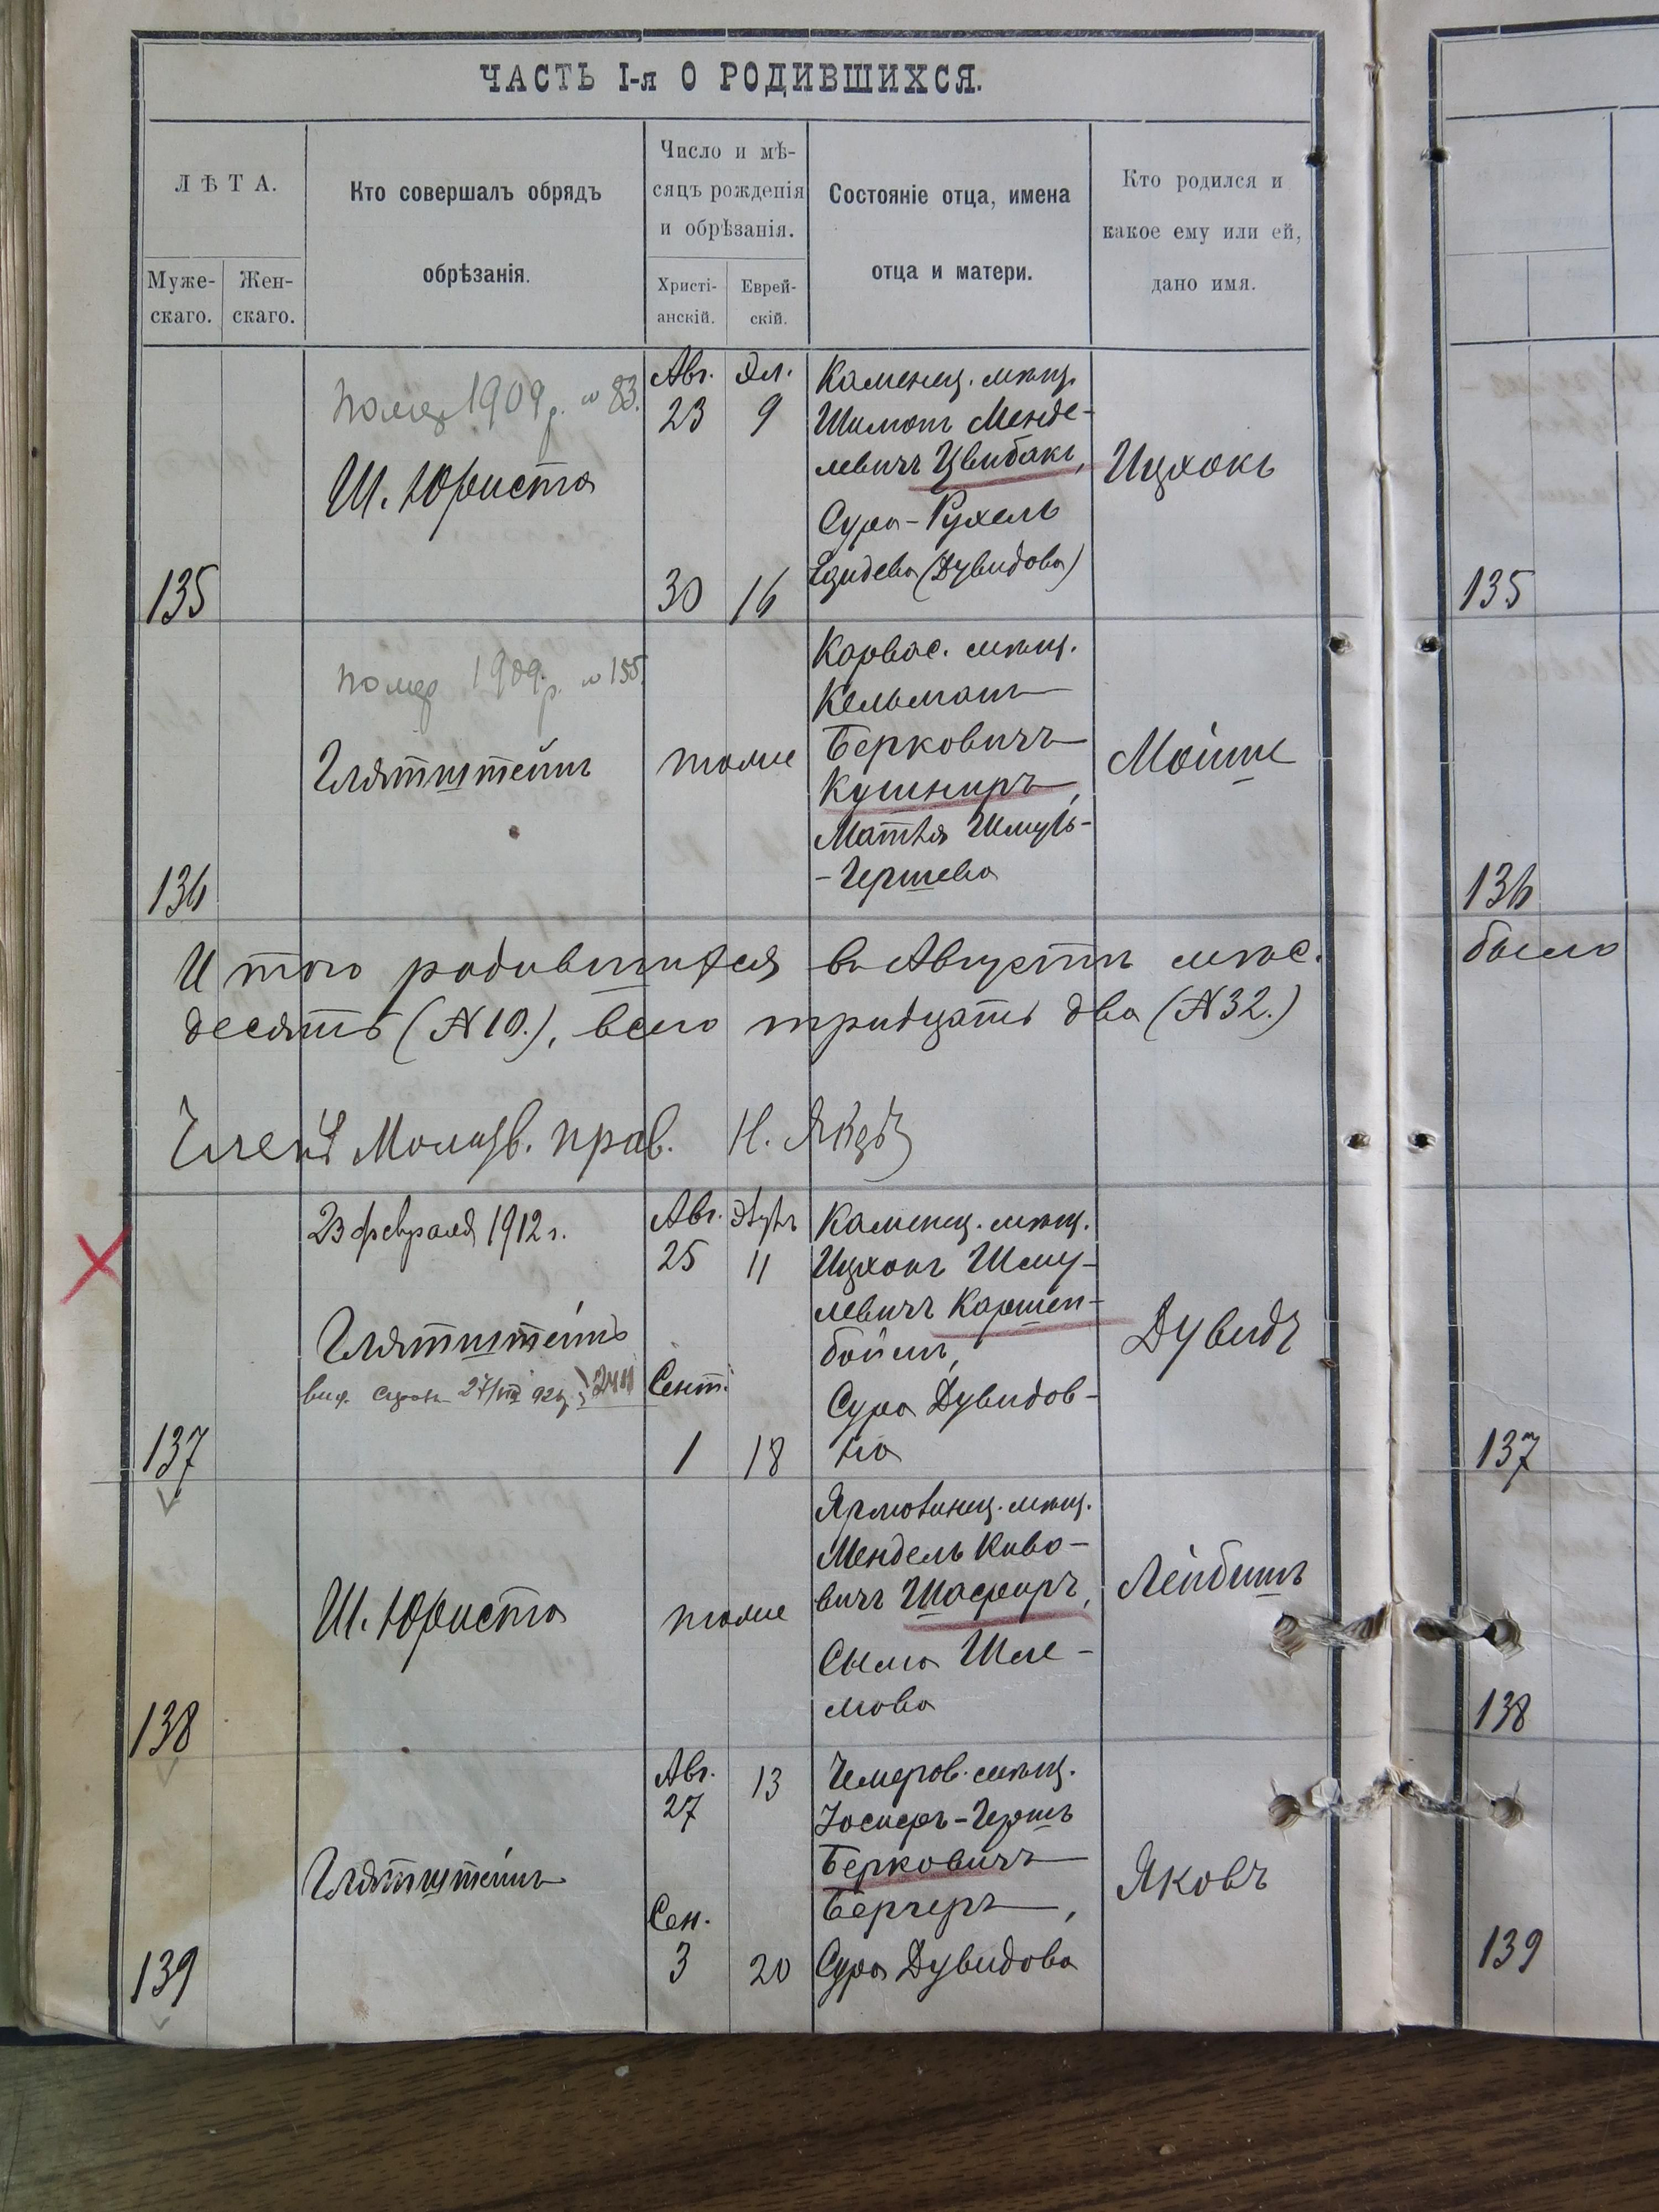 ЧАСТЬ I-я О РОДИВШИХСЯ.
ЛѢТА.
Муже-
скаго.
Жен-
скаго.
Кто совершалъ обрядъ
обрѣзанія.
Число и мѣ-
сяцъ рожденія
и обрѣзанія.
Христі-
анскій.
Еврей-
скій.
Состояніе отца, имена
отца и матери.
Кто родился и
какое ему или ей,
дано имя.
135
1909 г. № 83.
Ш. Юриста
Авг. Эл.
23 9
30 16
Каменец. мѣщ.
Шимонъ Менде-
левичъ Цвибакъ,
Сура-Рухель
(Дувидова)
Ицхокъ
135
136
1909 г. № 155.
Глятштейнъ
тоже
Карвас. мѣщ.
Кельманъ
Берковичъ
Кушниръ,
Матля Шмуль-
-Гершева
Мойше
136
Итого родившихся въ Августѣ мѣс.
десять (№ 10.), всего тридцать два (№ 32.)
было
Членъ Молитв. прав. Н.
137
23 февраля 1912 г.
Глятштейнъ
Авг.
25 11
Сент.
1 18
Каменец. мѣщ.
Ицхокъ Шму-
левичъ Каршен-
боймъ,
Сура Дувидов-
на
Дувидъ
137
138
Ш. Юриста
тоже
Ярмолинец. мѣщ.
Мендель Киво-
вичъ Шафиръ,
Сыма Шле-
мова
Лейбишъ
138
139
Глятштейнъ
Авг.
27 13
Сен.
3 20
Чемеров. мѣщ.
Іосифъ-Гершъ
Берковичъ
Бергеръ,
Сура Дувидова
Яковъ
139